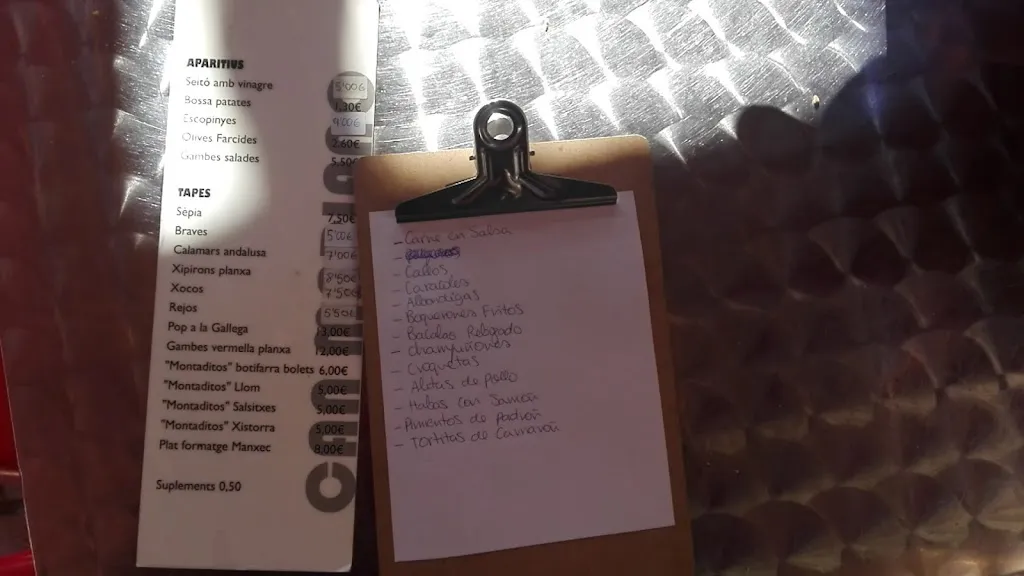 APARITIUS
Seitó amb vinagre 5'00€
Bossa patates 1,30€
Escopinyes 4'00€
Olives Farcides 2,60€
Gambes salades 5,50€
TAPES
Sèpia 7,50€
Braves 5'00€
Calamars andalusa 7'00€
Xipirons planxa 8'50€
Xocos 7'50€
Rejos 5'50€
Pop a la Gallega 13,00€
Gambes vermella planxa 12,00€
"Montaditos" botifarra bolets 6,00€
"Montaditos" Llom 5,00€
"Montaditos" Salsitxes 5,00€
"Montaditos" Xistorra 5,00€
Plat formatge Manxec 8,00€
Suplements 0,50
- Carne en Salsa
- Callos
- Caracoles
- Albondigas
- Boquerones Fritos
- Bacalao Rebozado
- Champiñones
- Croquetas
- Alitas de pollo
- Habas con Jamón
- Pimientos de padrón
- Tortitas de Camarón